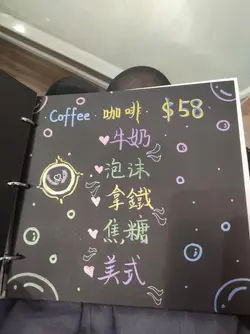 Coffee 咖啡 $58
牛奶
泡沫
拿鐵
焦糖
美式